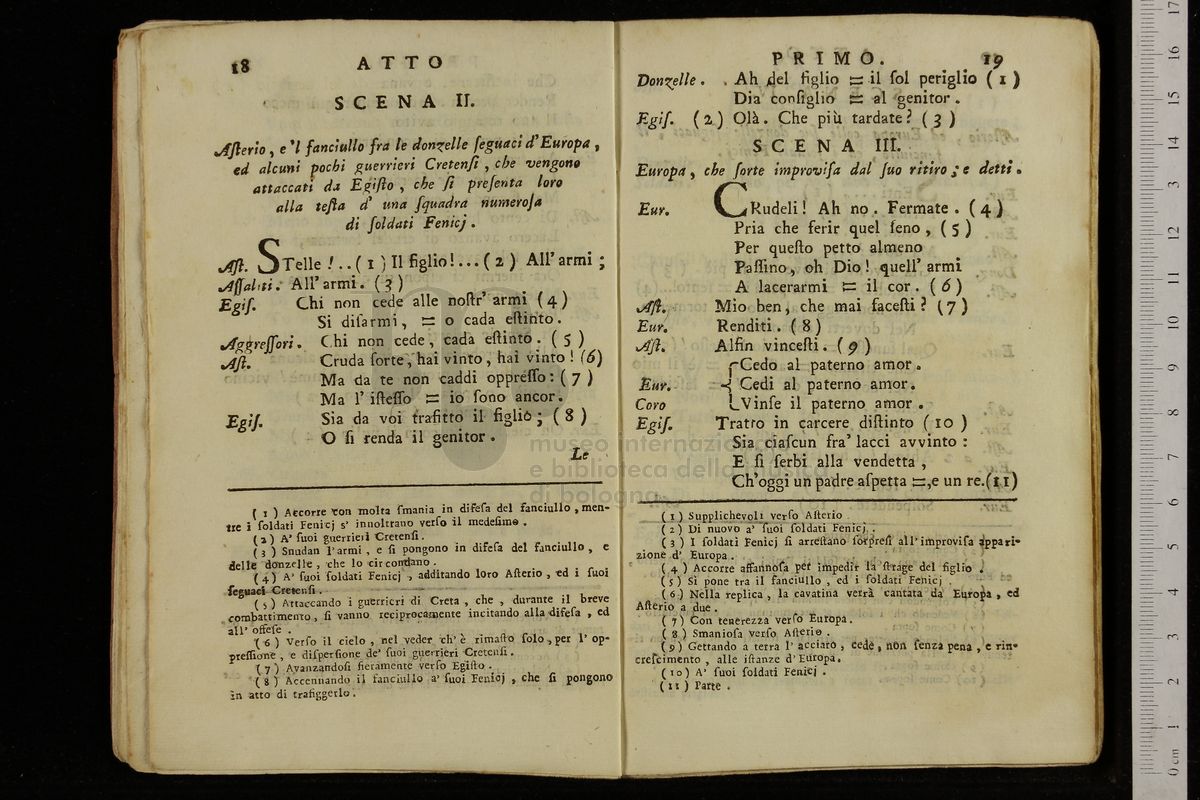 18 ATTO
SCENA II.
Aſterio, e 'l fanciullo fra le donzelle ſeguaci d'Europa,
ed alcuni pochi guerrieri Cretenſi, che vengono
attaccati da Egiſto, che ſi preſenta loro
alla teſta d' una ſquadra numeroſa
di ſoldati Fenicj.
Aſt. STelle!..(1) Il figlio!...(2) All' armi;
Aſſaliti. All' armi. (3)
Egiſ. Chi non cede alle noſtr' armi (4)
Si diſarmi, = o cada eſtinto.
Aggreſſori. Chi non cede, cada eſtinto. (5)
Aſt. Cruda ſorte, hai vinto, hai vinto! (6)
Ma da te non caddi oppreſſo: (7)
Ma l' iſteſſo = io ſono ancor.
Egiſ. Sia da voi trafitto il figlio; (8)
O ſi renda il genitor.
Le
(1) Accorre con molta ſmania in difeſa del fanciullo, men-
tre i ſoldati Fenicj s' innoltrano verſo il medeſimo.
(2) A' ſuoi guerrieri Cretenſi.
(3) Snudan l'armi, e ſi pongono in difeſa del fanciullo, e
delle donzelle, che lo circondano.
(4) A' ſuoi ſoldati Fenicj, additando loro Aſterio, ed i ſuoi
ſeguaci Cretenſi.
(5) Attaccando i guerrieri di Creta, che, durante il breve
combattimento, ſi vanno reciprocamente incitando alla difeſa, ed
all' offeſe.
(6) Verſo il cielo, nel veder ch' è rimaſto ſolo, per l' op-
preſſione, e diſperſione de' ſuoi guerrieri Cretenſi.
(7) Avanzandoſi fieramente verſo Egiſto.
(8) Accennando il fanciullo a' ſuoi Fenicj, che ſi pongono
in atto di trafiggerlo.
PRIMO. 19
Donzelle. Ah del figlio = il ſol periglio (1)
Dia conſiglio = al genitor.
Egiſ. (2) Olà. Che più tardate? (3)
SCENA III.
Europa, che ſorte improviſa dal ſuo ritiro; e detti.
Eur. CRudeli! Ah no. Fermate. (4)
Pria che ferir quel ſeno, (5)
Per queſto petto almeno
Paſſino, oh Dio! quell' armi
A lacerarmi = il cor. (6)
Aſt. Mio ben, che mai faceſti? (7)
Eur. Renditi. (8)
Aſt. Alfin vinceſti. (9)
Cedo al paterno amor.
Eur. = Cedi al paterno amor.
Coro Vinſe il paterno amor.
Egiſ. Tratto in carcere diſtinto (10)
Sia ciaſcun fra' lacci avvinto:
E ſi ſerbi alla vendetta,
Ch'oggi un padre aſpetta =, e un re. (11)
(1) Supplichevoli verſo Aſterio.
(2) Di nuovo a' ſuoi ſoldati Fenicj.
(3) I ſoldati Fenicj ſi arreſtano ſorpreſi all' improviſa appari-
zione d' Europa.
(4) Accorre affannoſa per impedir la ſtrage del figlio.
(5) Si pone tra il fanciullo, ed i ſoldati Fenicj.
(6) Nella replica, la cavatina verrà cantata da Europa, ed
Aſterio a due.
(7) Con tenerezza verſo Europa.
(8) Smanioſa verſo Aſterio.
(9) Gettando a terra l' acciaro, cede, non ſenza pena, e rin-
creſcimento, alle iſtanze d' Europa.
(10) A' ſuoi ſoldati Fenicj.
(11) Parte.
museo internazionale
e biblioteca della musica
di bologna